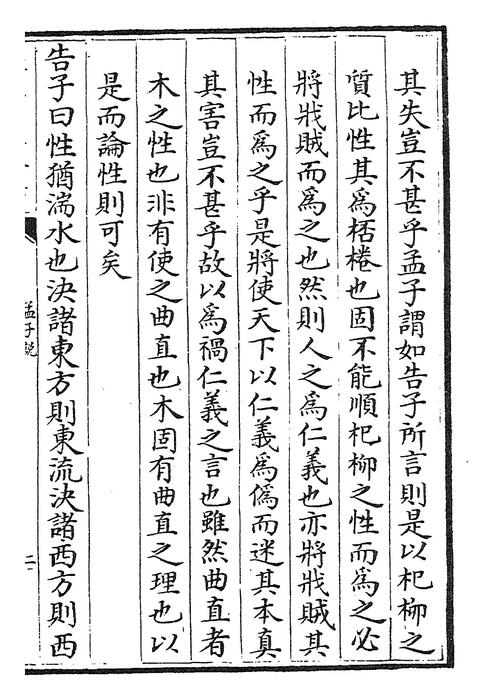 其失豈不甚乎孟子謂如告子所言則是以杞柳之
質比性其為桮棬也固不能順杞柳之性而為之必
將戕賊而為之也然則人之為仁義也亦將戕賊其
性而為之乎是將使天下以仁義為偽而迷其本真
其害豈不甚乎故以為禍仁義之言也雖然曲直者
木之性也非有使之曲直也木固有曲直之理也以
是而論性則可矣
告子曰性猶湍水也決諸東方則東流決諸西方則西
孟子說
二